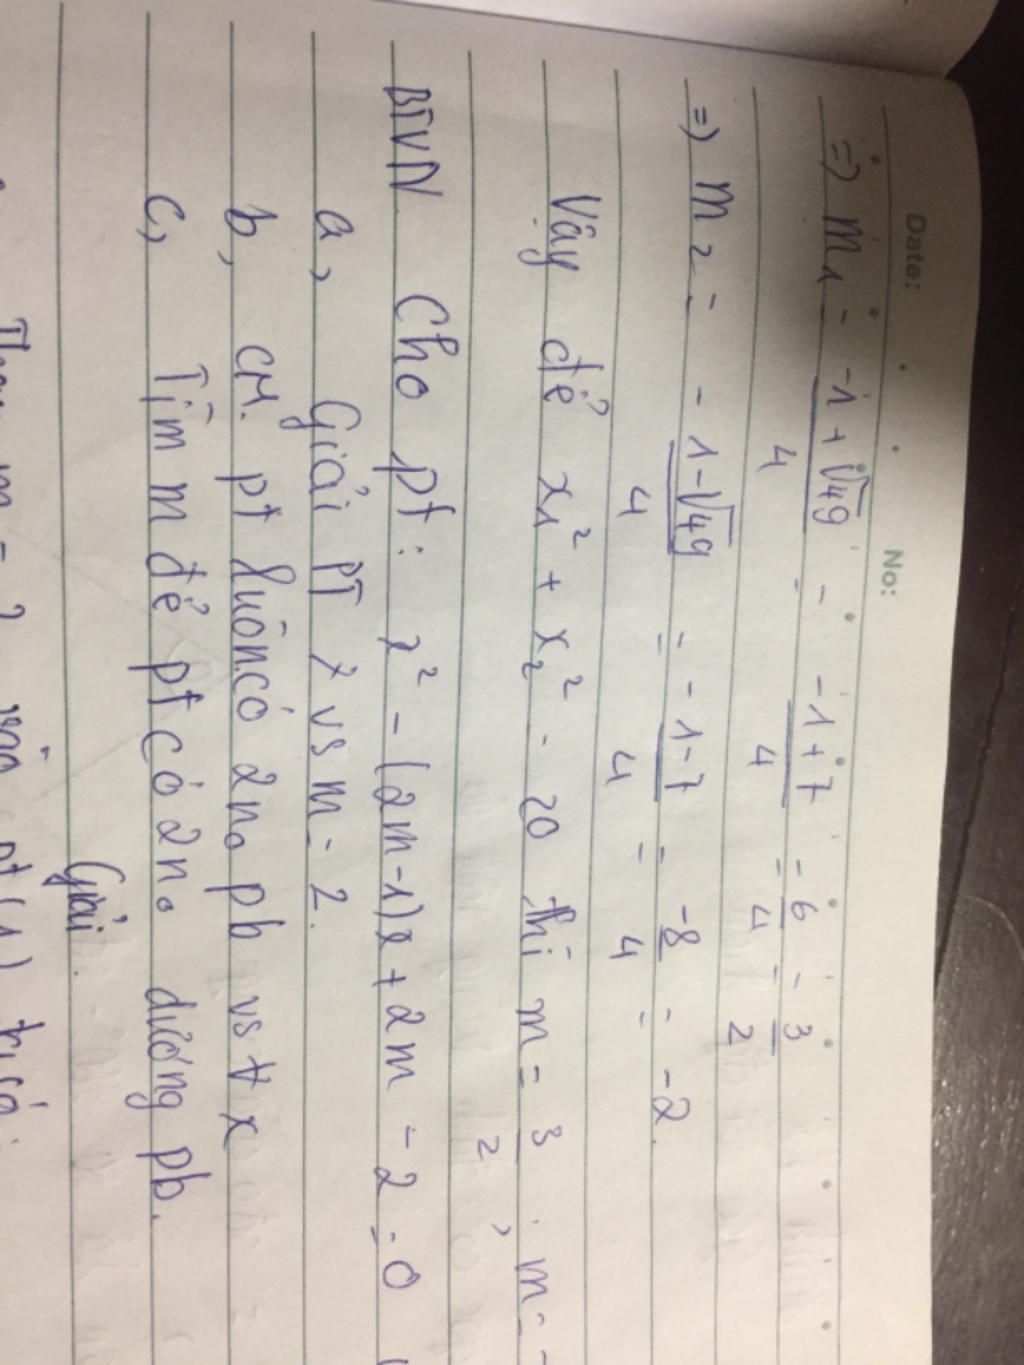 Date: No:
=) m₁ = -1+√49/4 = -1+7/4 = 6/4 = 3/2
=) m₂ = -1-√49/4 = -1-7/4 = -8/4 = -2.
Vậy để x₁² + x₂² = 20 thì m = 3/2, m = -
BTVN. Cho pt: x² - (2m-1)x + 2m - 2 = 0
a, Giải PT vs m = 2.
b, CM. pt luôn có 2no pb vs ∀ x
c, Tìm m để pt có 2no dương pb.
Giải.
Thay m = 2 vào pt(1) ta có: